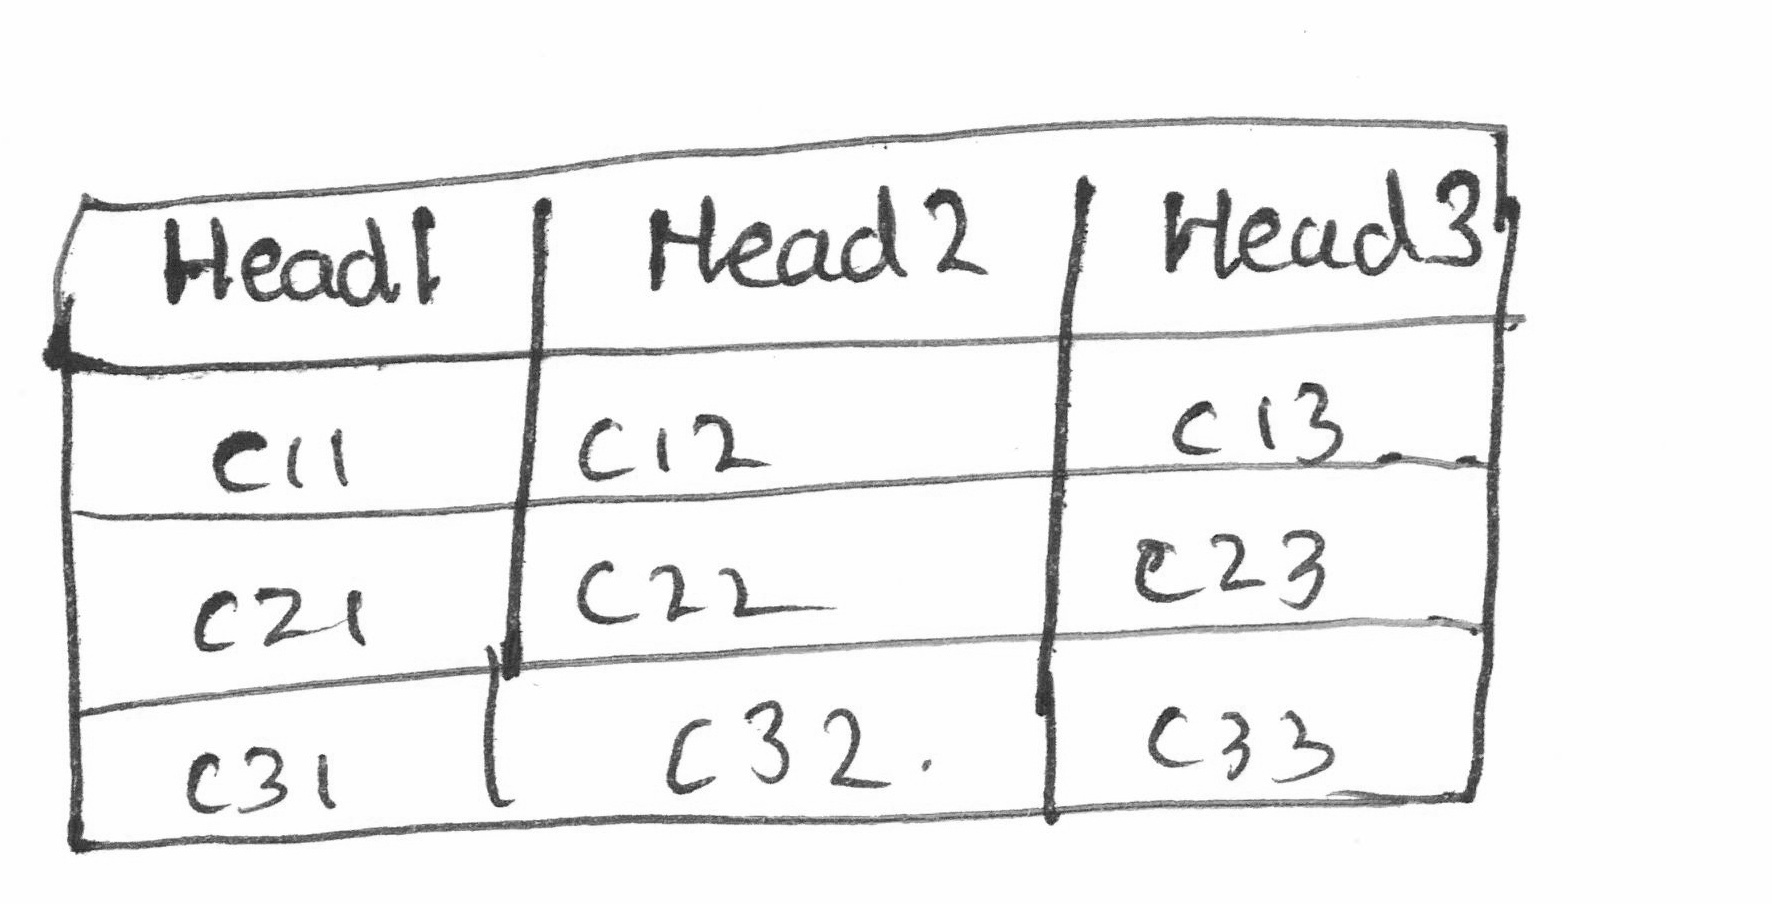 Head1 Head2 Head3
C11 C12 C13
C21 C22 C23
C31 C32. C33